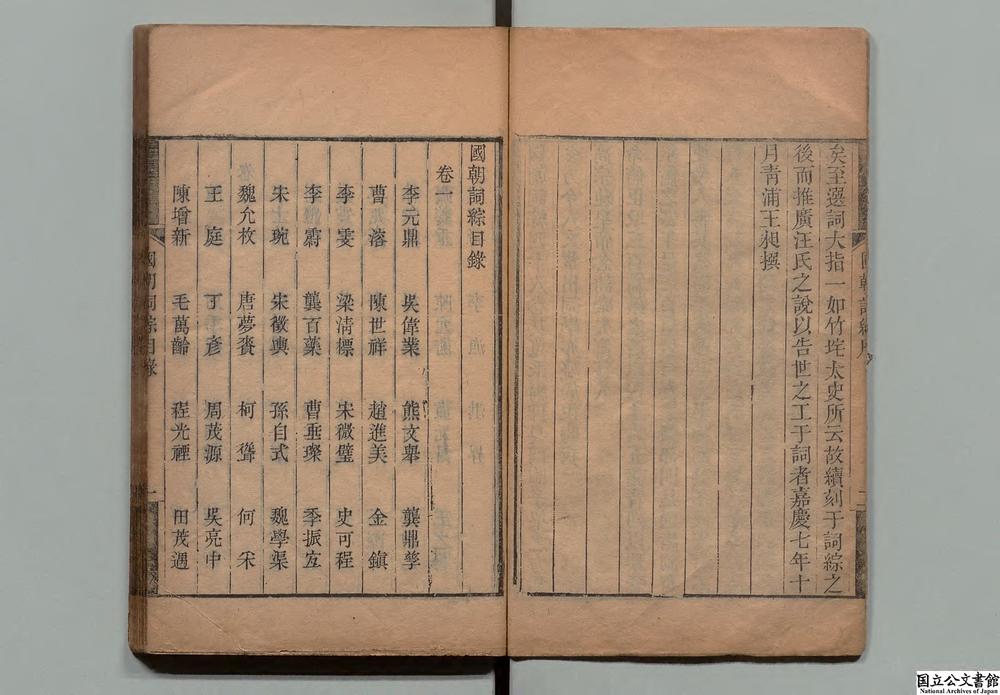 矣至選詞大指一如竹垞太史所云故續刻于詞綜之
後而推廣汪氏之說以告世之工于詞者嘉慶七年十
月青浦王昶撰
國朝詞綜序
二
國朝詞綜目錄
卷一
李元鼎 吳偉業 熊文舉 龔鼎孳
曹溶 陳世祥 趙進美 金鎮
李雯 梁清標 宋徵璧 史可程
李 霨 龔百藥 曹垂璨 季振宜
朱士琬 宋徵輿 孫自式 魏學渠
魏允枚 唐夢賚 柯聳 何采
王庭 丁彥 周茂源 吳亮中
陳增新 毛萬齡 程光禋 田茂遇
國朝詞綜目錄
一
国立公文書館
National Archives of Japan